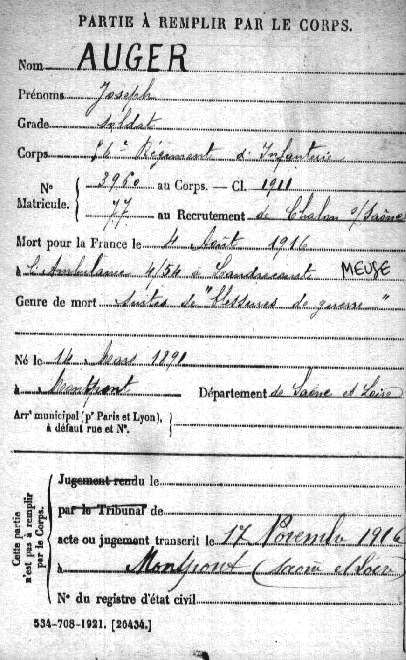 PARTIE À REMPLIR PAR LE CORPS.
Nom AUGER
Prénoms Joseph
Grade soldat
Corps 56e Régiment d'Infanterie
N° Matricule. { 3960 au Corps. — Cl. 1911
77 au Recrutement de Chalon s/Saône
Mort pour la France le 4 Août 1916
à l'Ambulance 4/54 à Landrecourt MEUSE
Genre de mort suites de "blessures de guerre"
Né le 14 Mars 1891
à Montpont Département de Saône et Loire
Arrt municipal (pr Paris et Lyon), à défaut rue et N°.
Cette partie n'est pas à remplir par le Corps.
Jugement rendu le
par le Tribunal de
acte ou jugement transcrit le 17 Novembre 1916
à Montpont (Saone et Loire)
N° du registre d'état civil
534-708-1921. [26434.]